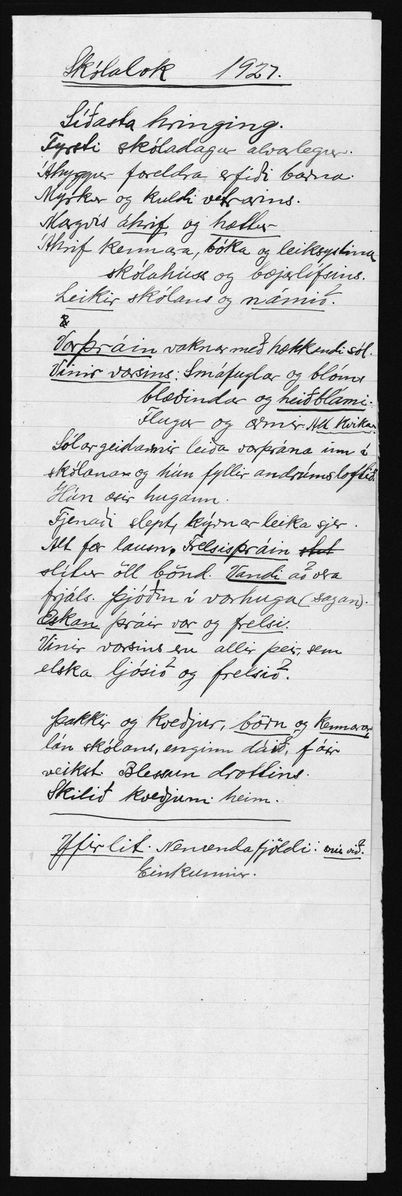 Skólalok 1927.
Síðasta hringing.
Fyrsti skóladagur alvarlegur.
Áhyggjur foreldra, erfiði barna.
Myrkur og kuldi vetrarins.
Margvís áhrif og hættur
Áhrif kennara, bóka og leiksystkina
skólahúss og bæjarlífsins.
Leikir skólans og námið.
Vorþráin vaknar með hækkandi sól.
Vinir vorsins: Smáfuglar og blóm
blævindar og heiðblámi.
Flugur og ormar. Alt kvikar
Sólargeislarnir leiða vorþrána inn í
skólana og hún fyllir andrúmsloftið.
Hún æsir hugann.
Fjenaði slept, kýrnar leika sjer.
Alt fer laust. Frelsisþráin
slítur öll bönd. Vandi að vera
frjáls. Þjóðin í vorhuga (sagan).
Æskan þráir vor og frelsi.
Vinir vorsins eru allir þeir, sem
elska ljósið og frelsið.
Þakkir og kveðjur, börn og kennarar
lán skólans, enginn dáið, fáir
veikst. Blessun drottins.
Skilið kveðjum heim.
Yfirlit. Nemendafjöldi:
Einkunnir.